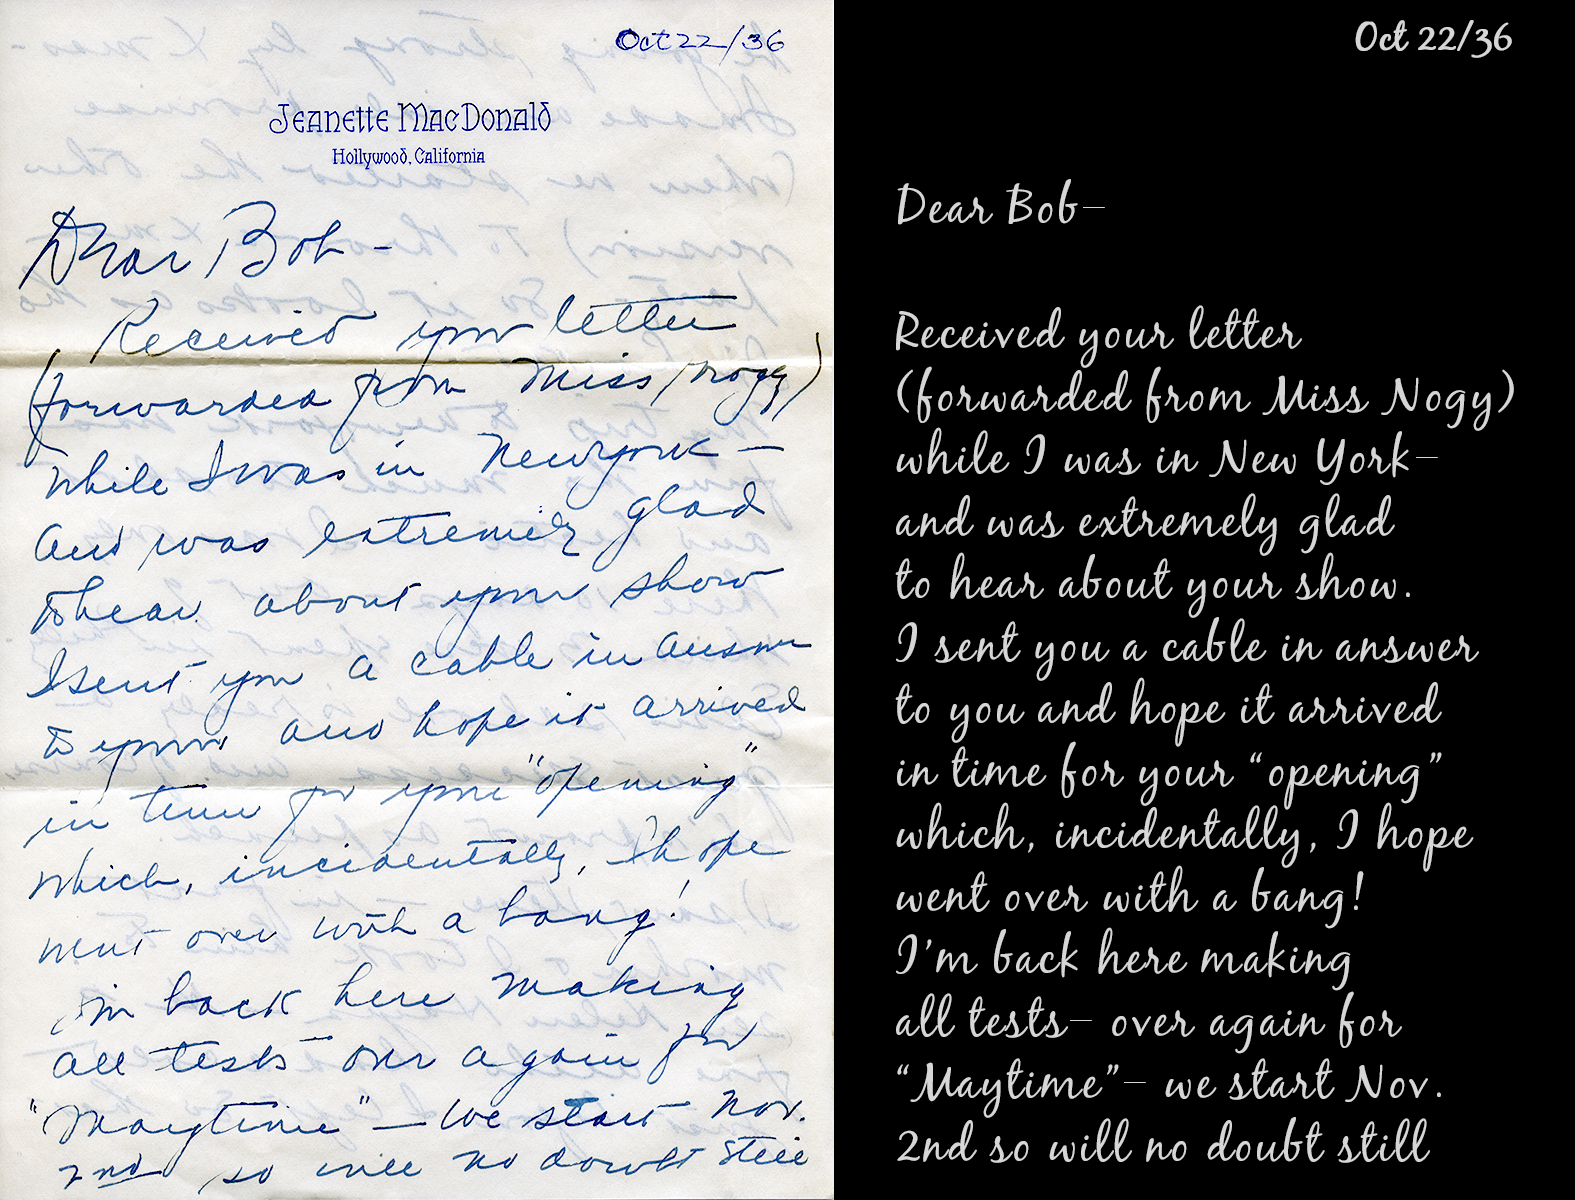 Oct 22/36
Jeanette MacDonald
Hollywood, California
Dear Bob –
Received your letter
(forwarded from Miss Nogy)
while I was in New York –
and was extremely glad
to hear about your show
I sent you a cable in answer
to yours and hope it arrived
in time for your "opening"
which, incidentally, I hope
went over with a bang!
I'm back here making
all tests over again for
"Maytime" – we start Nov.
2nd so will no doubt still
Oct 22/36
Dear Bob–
Received your letter
(forwarded from Miss Nogy)
while I was in New York–
and was extremely glad
to hear about your show.
I sent you a cable in answer
to you and hope it arrived
in time for your “opening”
which, incidentally, I hope
went over with a bang!
I'm back here making
all tests– over again for
“Maytime”– we start Nov.
2nd so will no doubt still